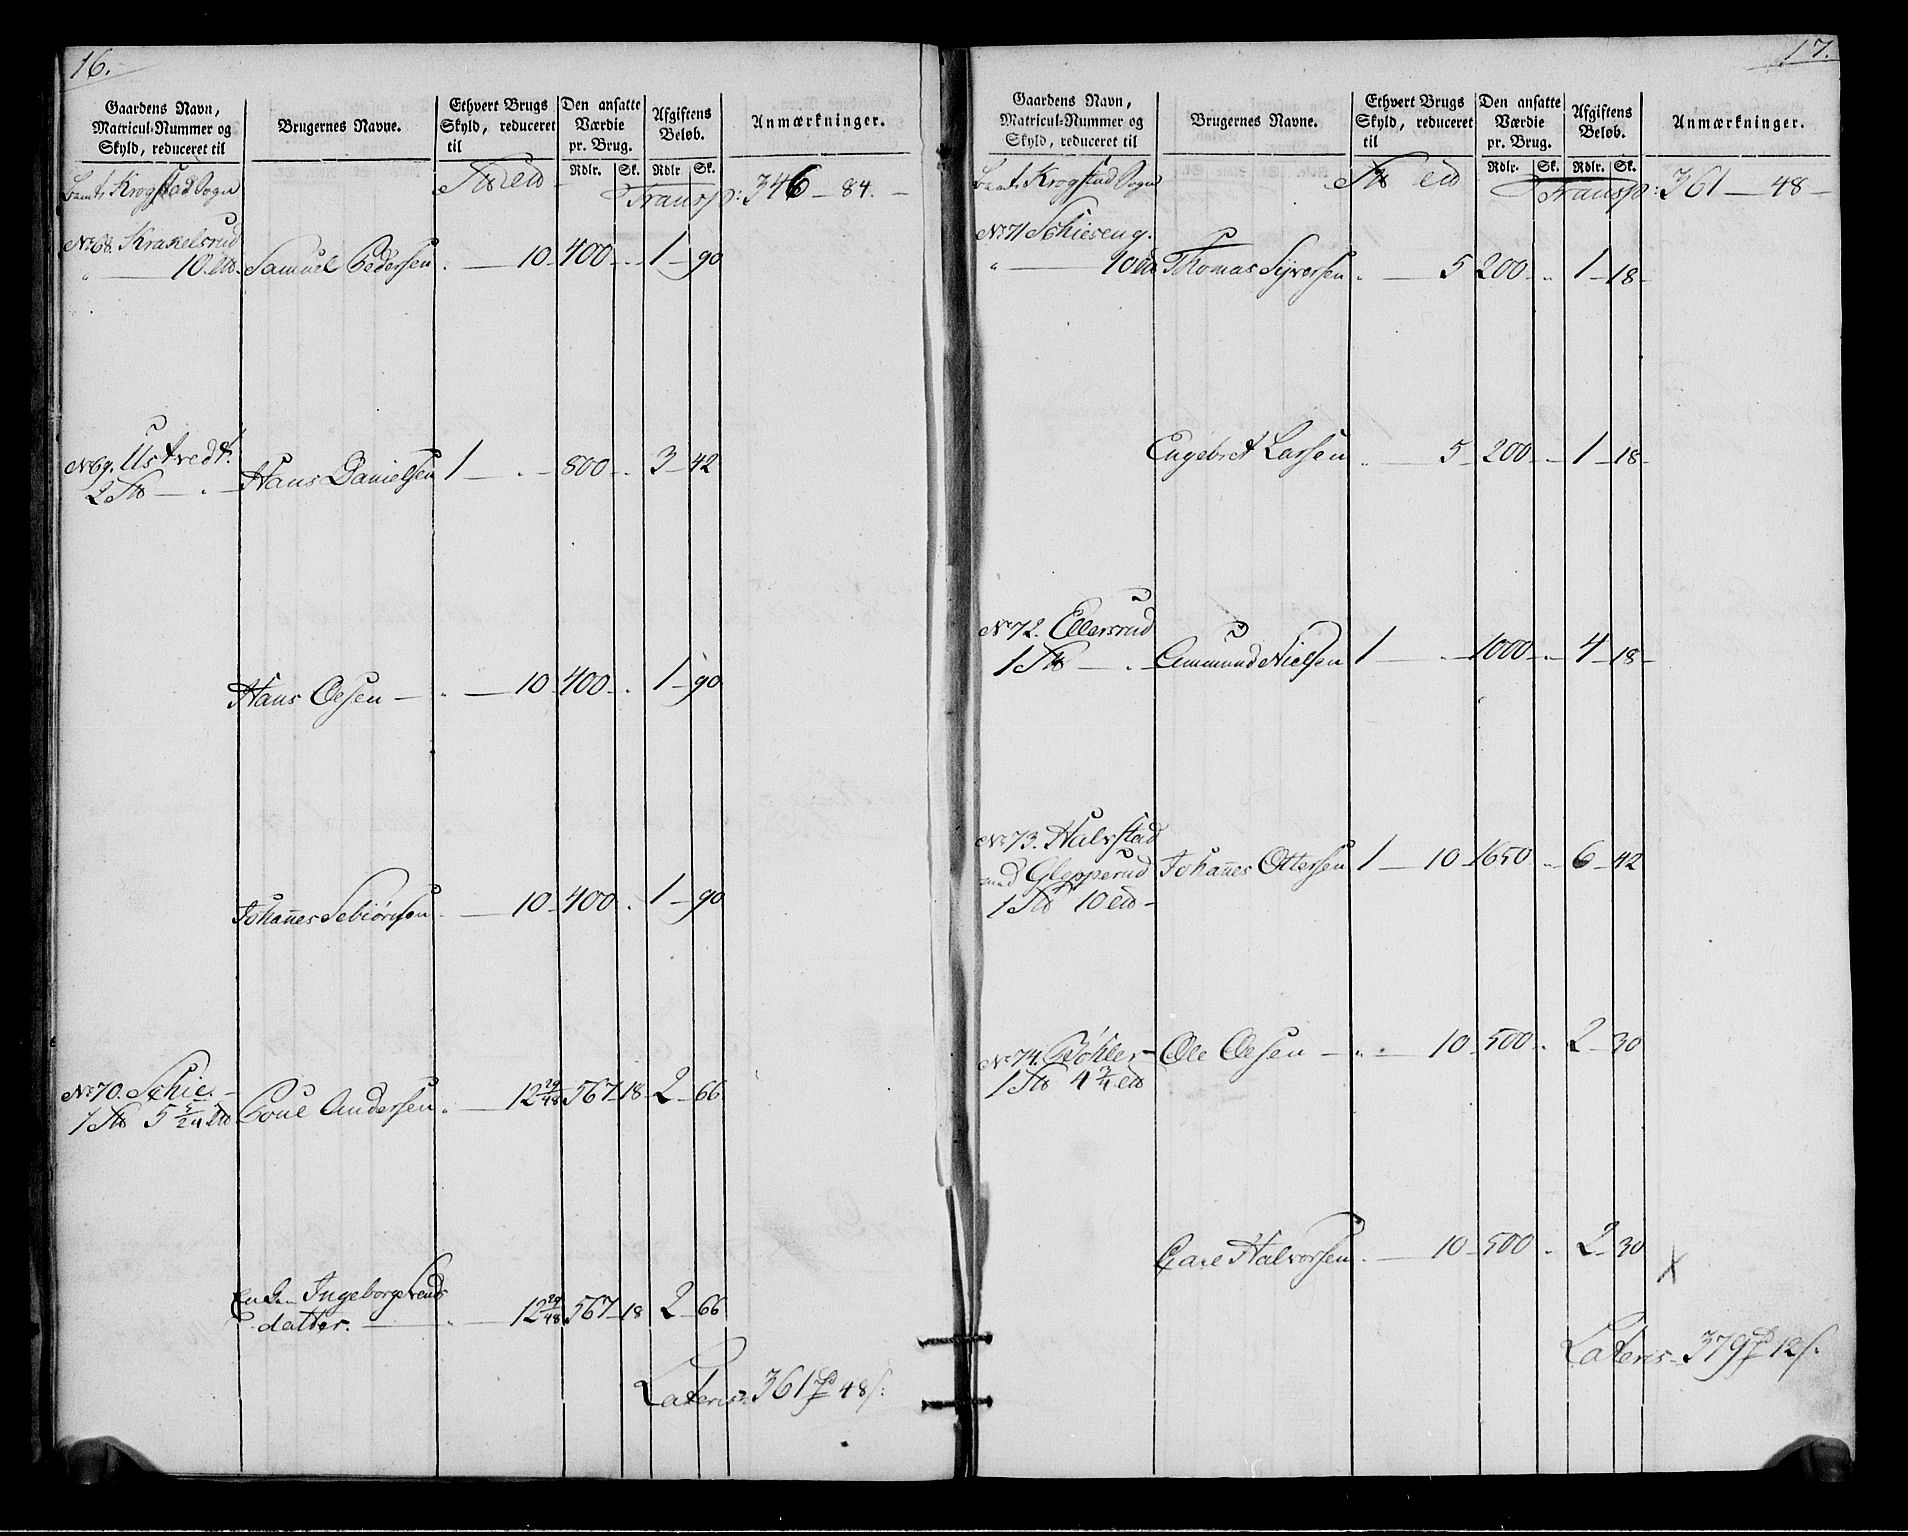 16.
Gaardens Navn, Matricul-Nummer og Skyld, reduceret til
Brugernes Navne.
Ethvert Brugs Skyld, reduceret til
Den ansatte Værdie pr. Brug.
Afgiftens Beløb.
Anmærkninger.
Rdlr. Sk. Rdlr. Sk.
Krogstad Sogn
Transp: 346 - 84.
No 68. Krakelsrud
10 Samuel Pedersen 10 400 1 90
No 69. Ustvedt.
2 Hans Danielsen 1 800 3 42
Hans Oesen 10 400 1 90
Johannes 10 400 1 90
No 70. Schie
1 5 5/24 Poul Andersen 12 29/48 567 18 2 66
Ingeborg Svends
datter. 12 29/48 567 18 2 66
Lateris 361 48
17.
Gaardens Navn, Matricul-Nummer og Skyld, reduceret til
Brugernes Navne.
Ethvert Brugs Skyld, reduceret til
Den ansatte Værdie pr. Brug.
Afgiftens Beløb.
Anmærkninger.
Rdlr. Sk. Rdlr. Sk.
Krogstad Sogn
Transp: 361 - 48
No 71 Schieseng.
10 Thomas Syversen 5 200 1 18
Engebret Larsen 5 200 1 18
No 72. Ellersrud
1 Ammund Nielsen 1 1000 4 18
No 73. Halvstad
med Glepperud Johannes Ottersen 1 10 1650 6 42
1 10
No 74. Bøhler Ole Oesen 10 500 2 30
1 4 3/4
Carl Halvorsen 10 500 2 30
Lateris 379 12